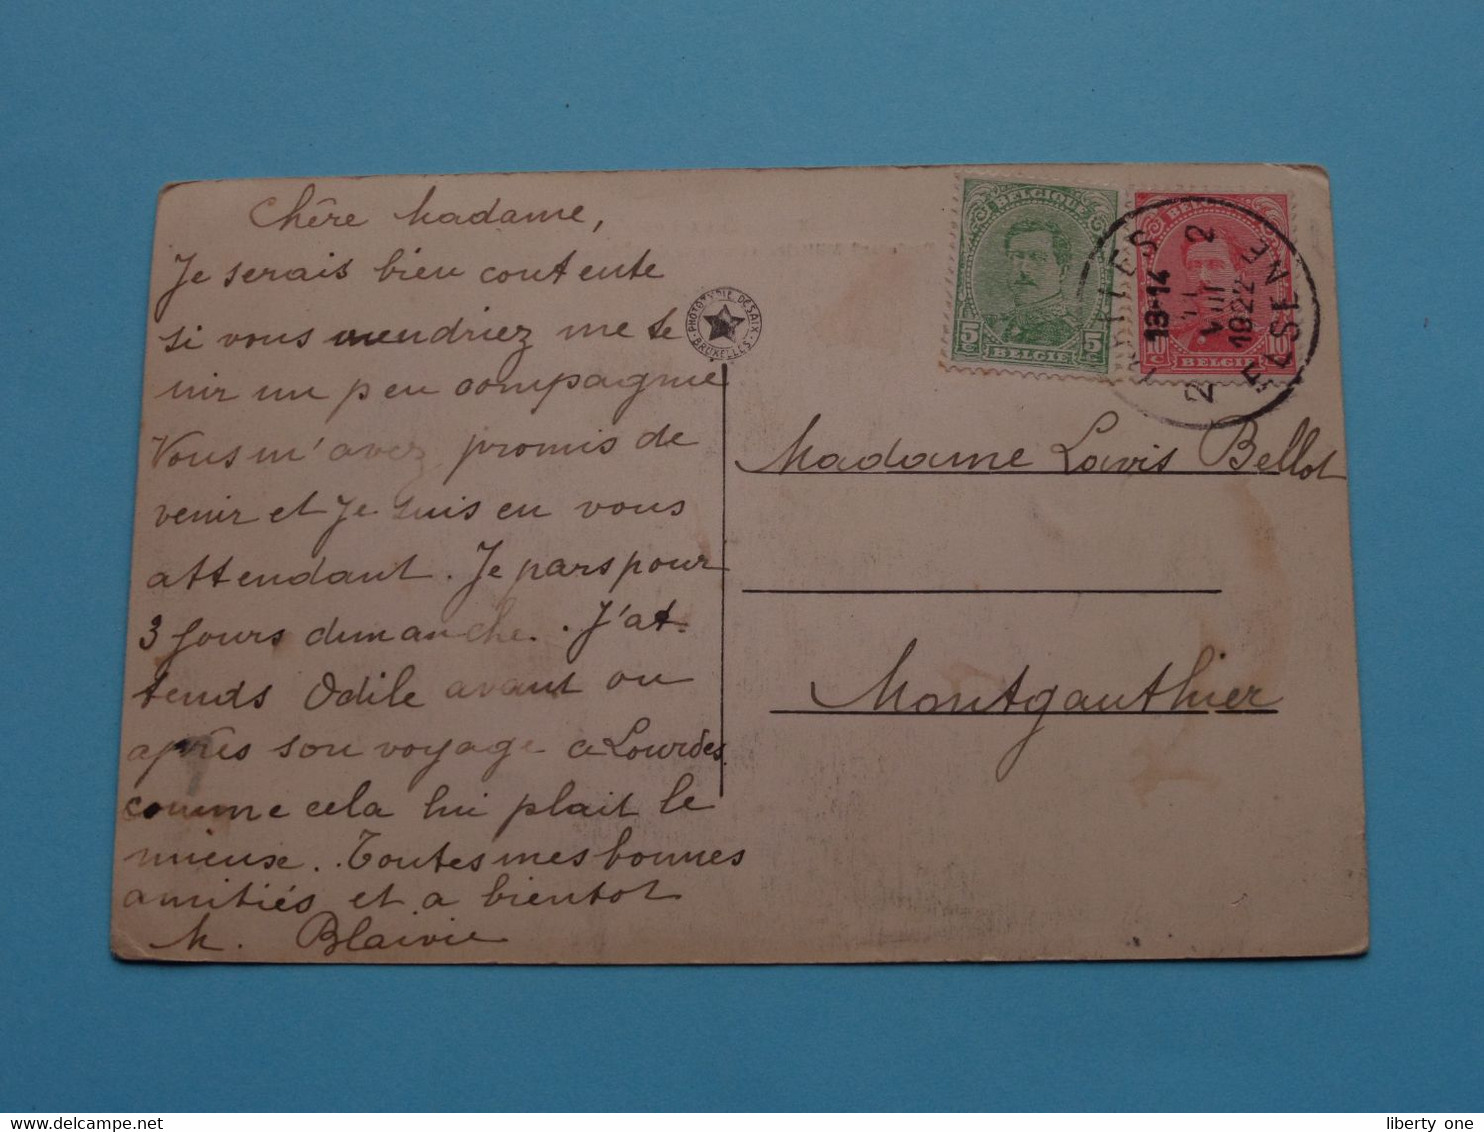 Chère Madame,
Je serais bien contente
si vous viendriez me te
nir un peu compagnie
Vous m'avez promis de
venir et Je suis en vous
attendant. Je pars pour
3 Jours dimanche. . J'at
tends Odile avant ou
après son voyage a Lourdes
comme cela lui plait le
mieuse. . Toutes mes bonnes
amitiés et a bientot
M. Blaivie
PHOTOTYPIE DESAIX
BRUXELLES
BELGIQUE
5c 5c
BELGIE
BELGIE
13-14
VIII
1922
2
2
Madame Lovis Bellot
Montgauthier
liberty one